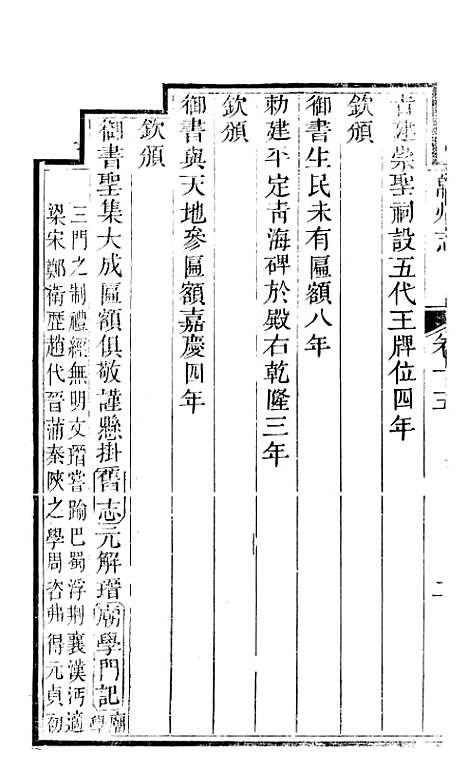 州志
卷十五
二
旨建崇聖祠設五代王牌位四年
欽頒
御書生民未有匾額八年
勅建平定靑海碑於殿右乾隆三年
欽頒
御書與天地參匾額嘉慶四年
欽頒
御書聖集大成匾額俱敬謹懸掛舊志元解瑨廟學門記廟學
三門之制禮經無明文瑨嘗踰巴蜀浮荆襄漢沔適
梁宋鄭衛歷趙代晉蒲秦陜之學周咨弗得元貞初